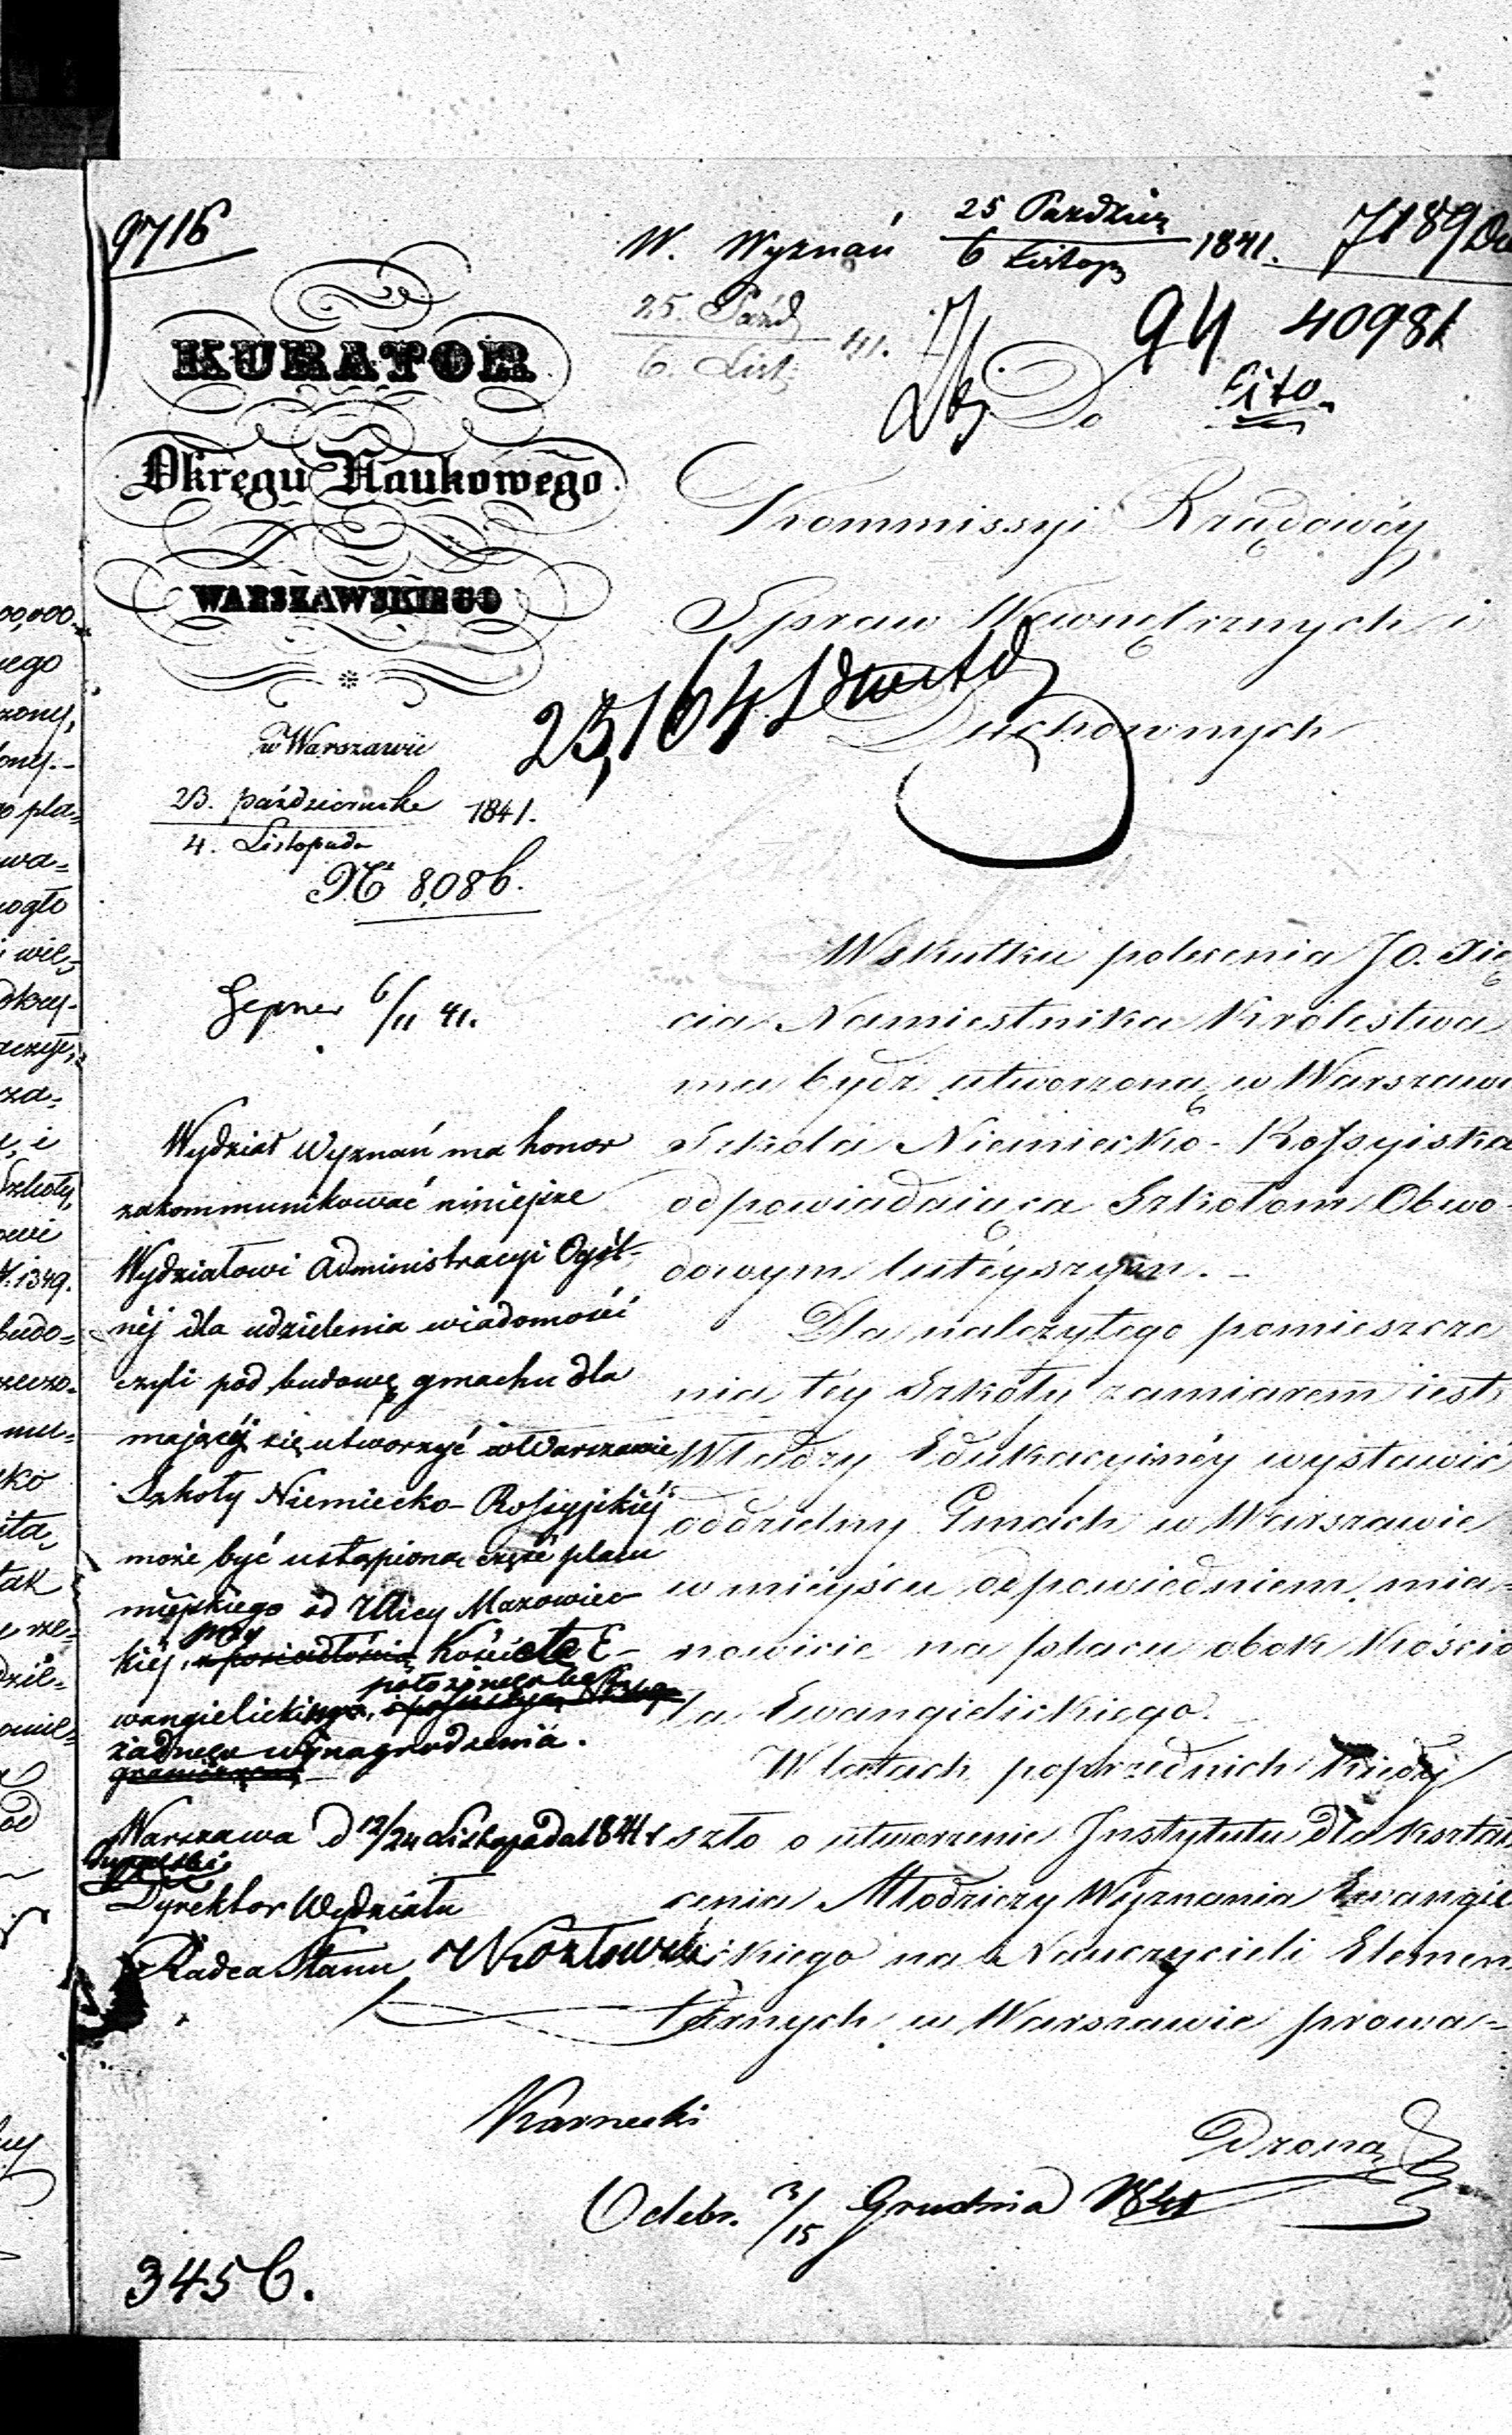 9716
W. Wyznań 25 Paździer / 6 Listop 1841.
25. Paźd / 6. List 41.
94 40981
Cito
KURATOR
Okręgu Naukowego
WARSZAWSKIEGO
w Warszawie
23. Października / 4. Listopada 1841.
№ 8086.
Do
Kommissyi Rządowéy
Spraw Wewnętrznych i
Duchownych
23,164
Gepner 6/11 41.
Wskutku polecenia JO. Xię
cia Namiestnika Królestwa
ma bydz utworzoną w Warszawi
Szkoła Niemiecko-Rossyiska
odpowiadaiąca Szkołom Obwo-
dowym tuteyszym.-
Dla należytego pomieszcze
nia téy Szkoły zamiarem iest
Władzy Edukacyinéy wystawić
oddzielny Gmach w Warszawie
w mieyscu odpowiedniem, mia-
nowicie na placu obok Kościo
ła Ewangielickiego.
W latach poprzednich kiedy
szło o utworzenie Instytutu dla kształ
cenia Młodzieży Wyznania Ewangie
lickiego na Nauczycieli Elemen
tarnych w Warszawie prowa-
Wydział Wyznań ma honor
zakommunikować niniejsze
Wydziałowi Administracyi Ogól-
néj dla udzielenia wiadomości
czyli pod budowę gmachu dla
mającéj się utworzyć w Warszawie
Szkoły Niemiecko-Rossyjskiéj
może być ustąpiona część placu
miejskiego od Ulicy Mazowiec-
kiéj, przy Kościele E-
wangielickim, położonego bez
żadnego wynagrodzenia.
Warszawa d 12/24 Listopada 1841 r
Dyrektor Wydziału
Radca Stanu Kozłowski
Karnecki
Odebr. 3/15 Grudnia 1841
3456.